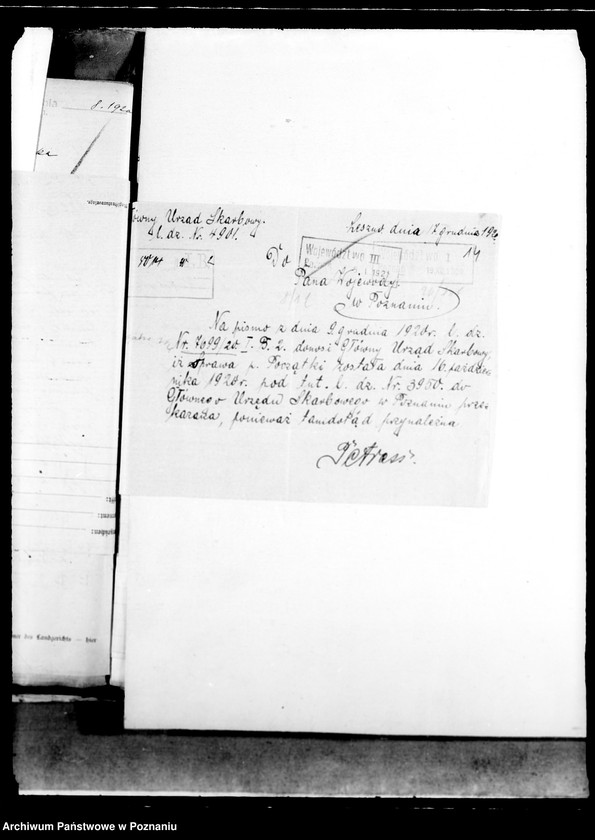 8. 192
Główny Urząd Skarbowy.
l. dz. Nr. 4901.
Leszno dnia 17 grudnia 192
14
Województwo III
1. 1921
Do
Pana Wojewody
w Poznaniu.
Na pismo z dnia 9. grudnia 1920r. l. dz.
Nr. 7099/20. I. B. 2. donosi Główny Urząd Skarbowy
iż sprawa p. Początki została dnia 16 paździer-
nika 1920r. pod tut. l. dz. Nr. 3950. do
Głównego Urzędu Skarbowego w Poznaniu prze-
kazana, ponieważ tamdokąd przynależna
Petrass.
des Landgerichts — hier
Archiwum Państwowe w Poznaniu